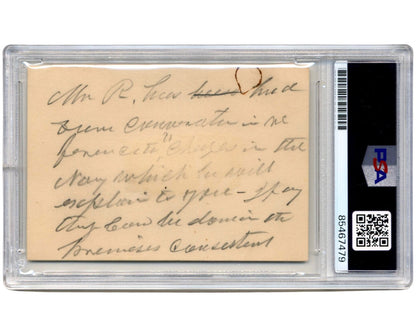 Mr R. has been had
some conversation in re
ference to changes in the
Navy which he will
explain to you - If any
thing can be done in the
premises consistent
PSA
85467479